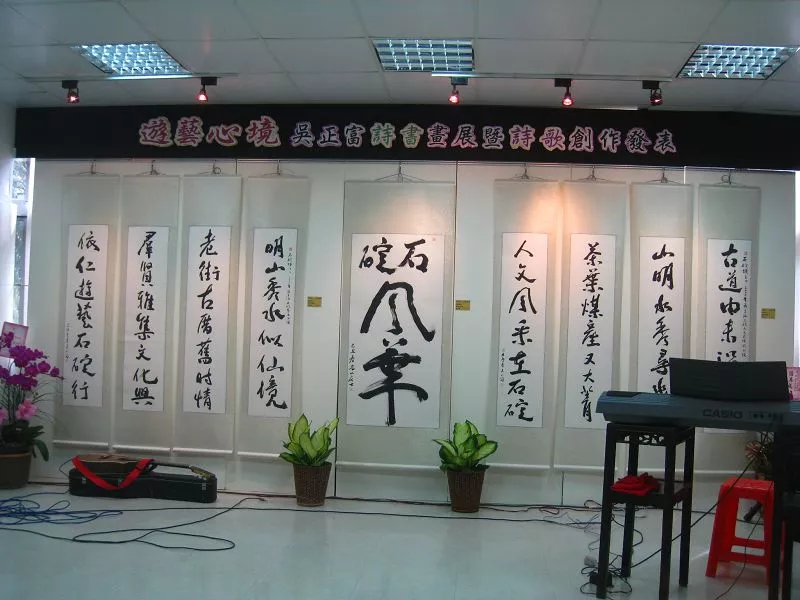 遊藝心境 吳正富詩書畫展暨詩歌創作發表
古道由來
山明水秀尋
茶葉煤產又大菁
人文風采在石碇
石碇
風華
明山秀水似仙境
老街古厝舊時情
羣賢雅集文化興
依仁遊藝石碇行
CASIO